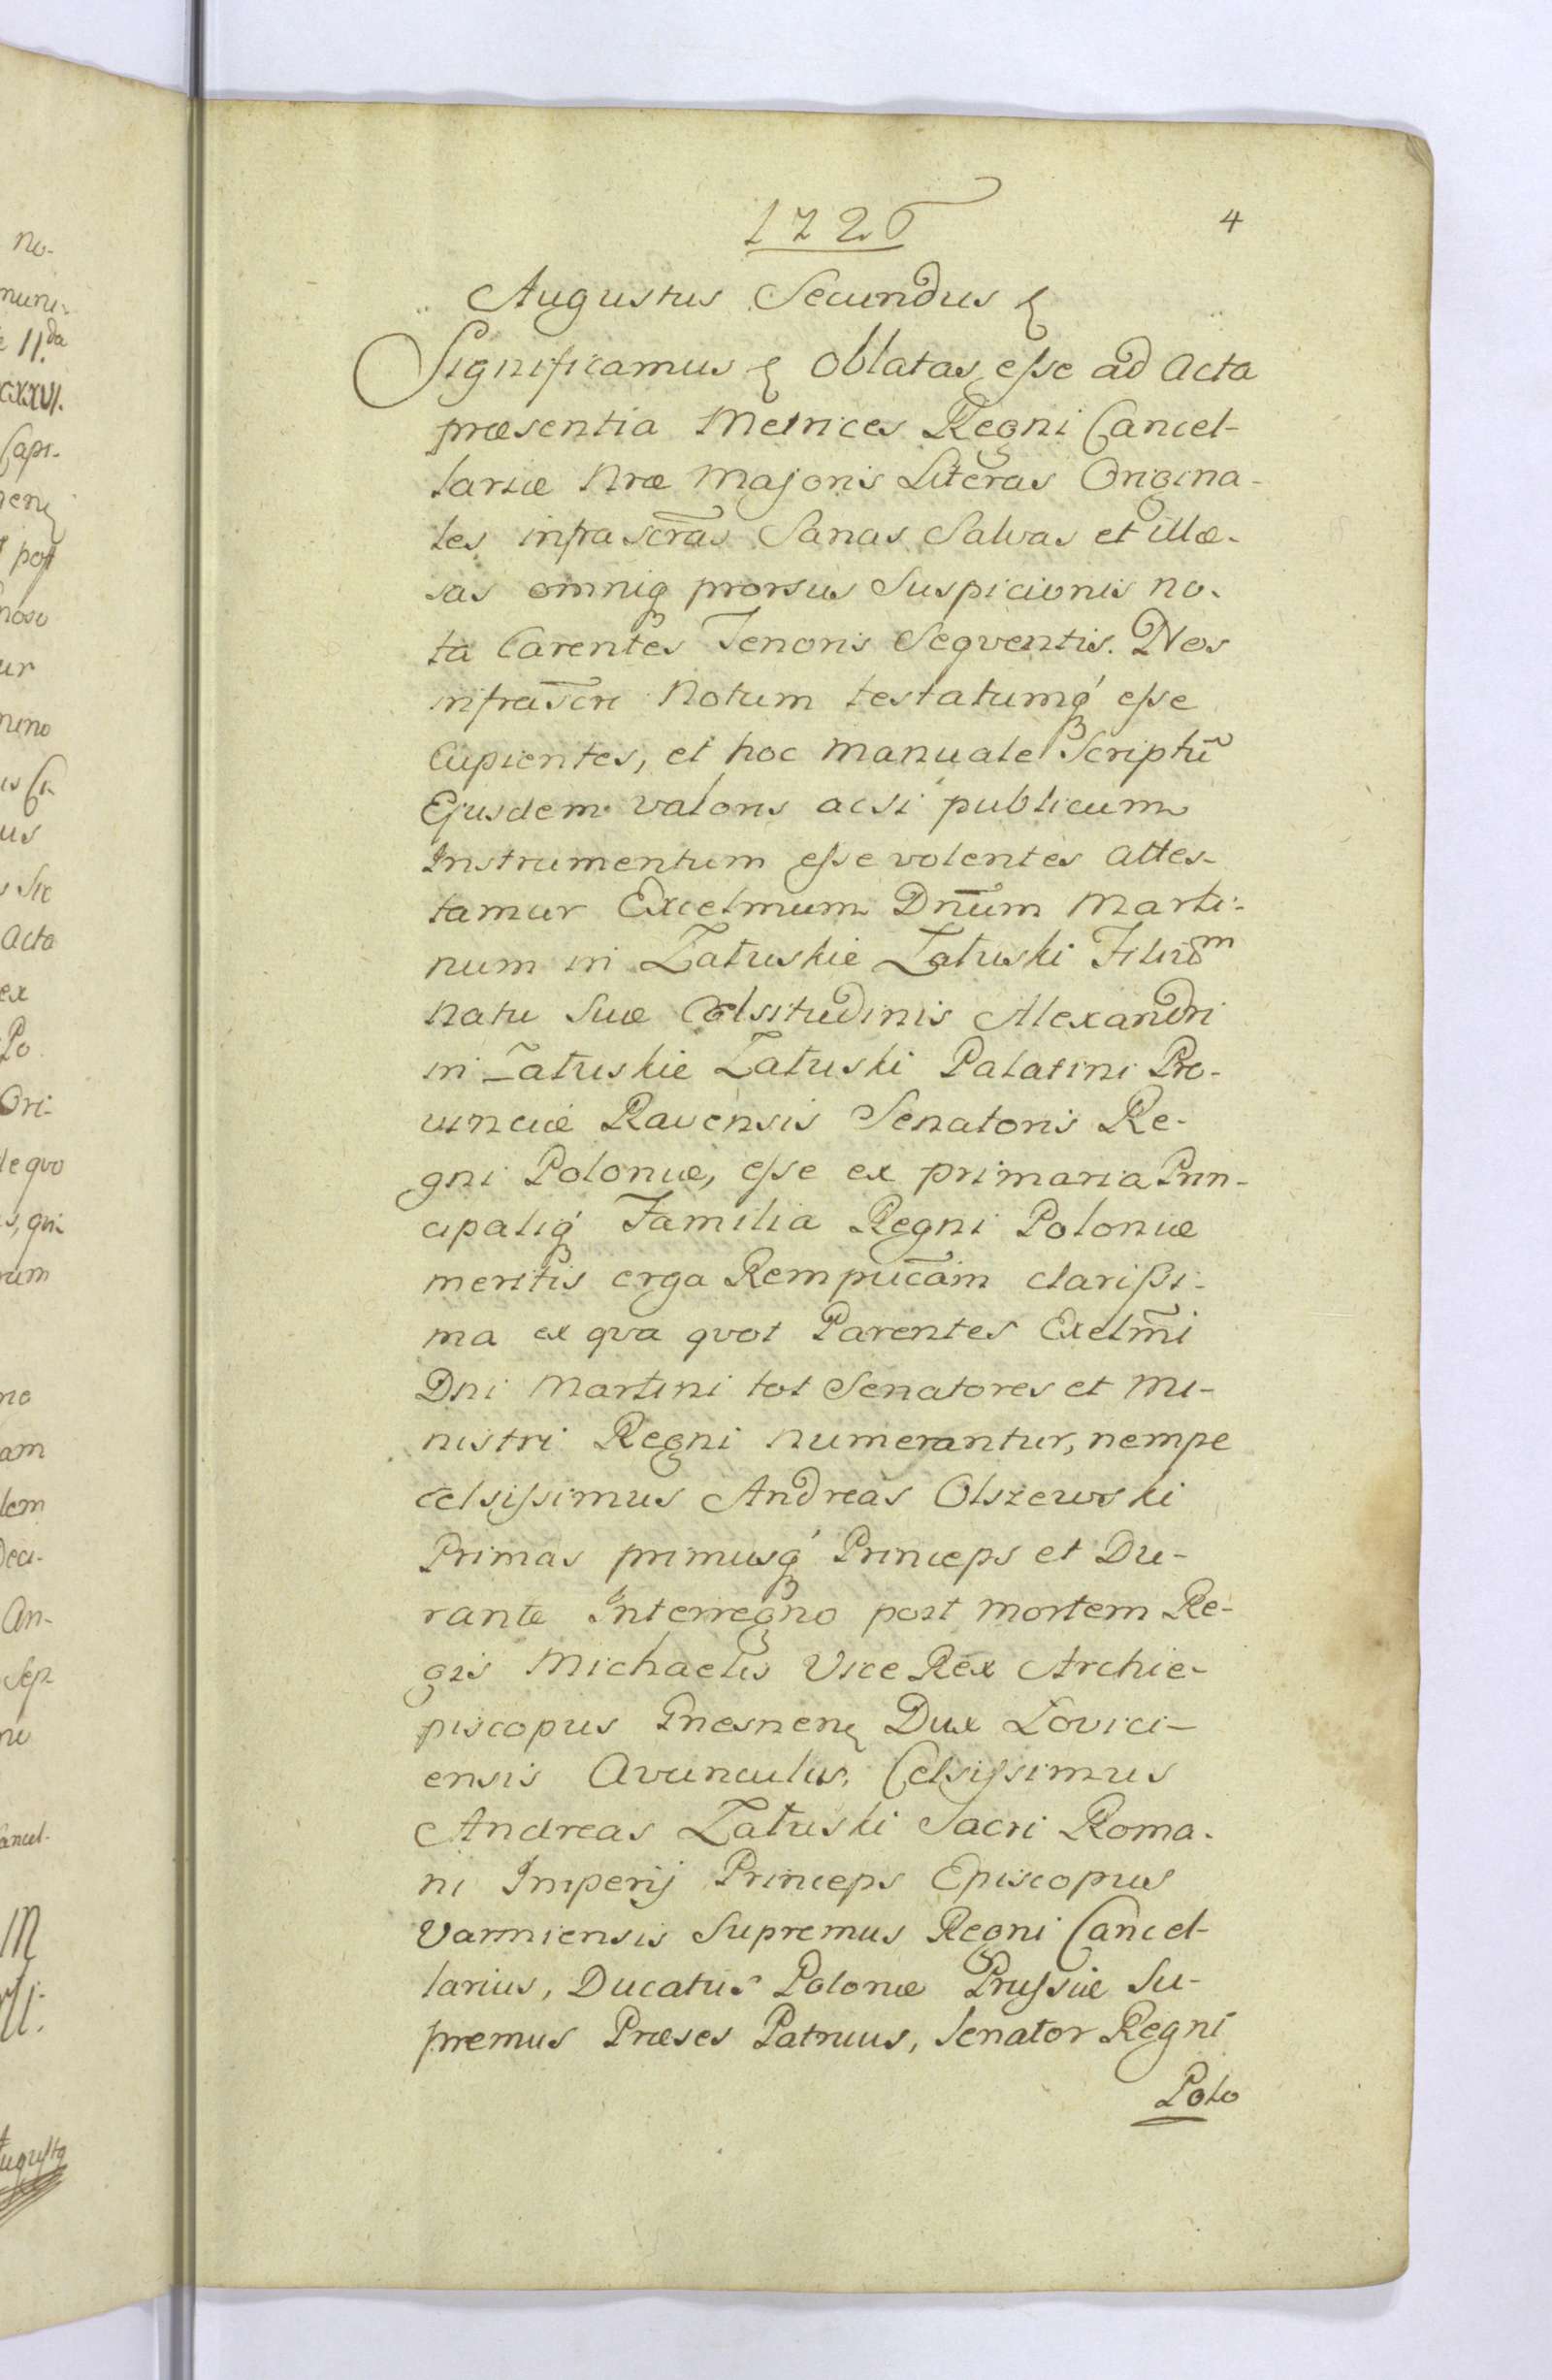 1726
4
Augustus Secundus &
Significamus & Oblatas esse ad Acta
præsentia Metrices Regni Cancel-
lariæ Nræ Majoris Literas Origina-
les infrascrãs Sanas Salvas et illæ-
sas omniq̃ prorsus Suspicionis no-
ta Carentes Tenoris Seqventis. Nos
infrascri Notum testatumq́ esse
Cupientes, et hoc manuale Scriptũ
Ejusdem valoris acsi publicum
Instrumentum esse volentes Attes-
tamur Excelmum Dnũm Marti-
num in Załuskie Załuski Filium
Natu Suæ Celsitudinis Alexandri
in Załuskie Załuski Palatini Pro-
vinciæ Ravensis Senatoris Re-
gni Poloniæ, esse ex primaria Prin-
cipaliq́ Familia Regni Poloniæ
meritis erga Rempućam clarissi-
ma ex qva qvot Parentes Excelm̃i
Dni Martini tot Senatores et Mi-
nistri Regni numerantur, nempe
celsissimus Andreas Olszewski
Primas primusq́ Princeps et Du-
rante Interregno post mortem Re-
gis Michaelis Vice Rex Archie-
piscopus Gnesnen Dux Lovici-
ensis Avunculus, Celsissimus
Andreas Załuski Sacri Roma-
ni Imperij Princeps Episcopus
Varmiensis Supremus Regni Cancel-
larius, Ducatus Polonæ Prussiæ Su-
premus Præses Patruus, Senator Regni
Polo